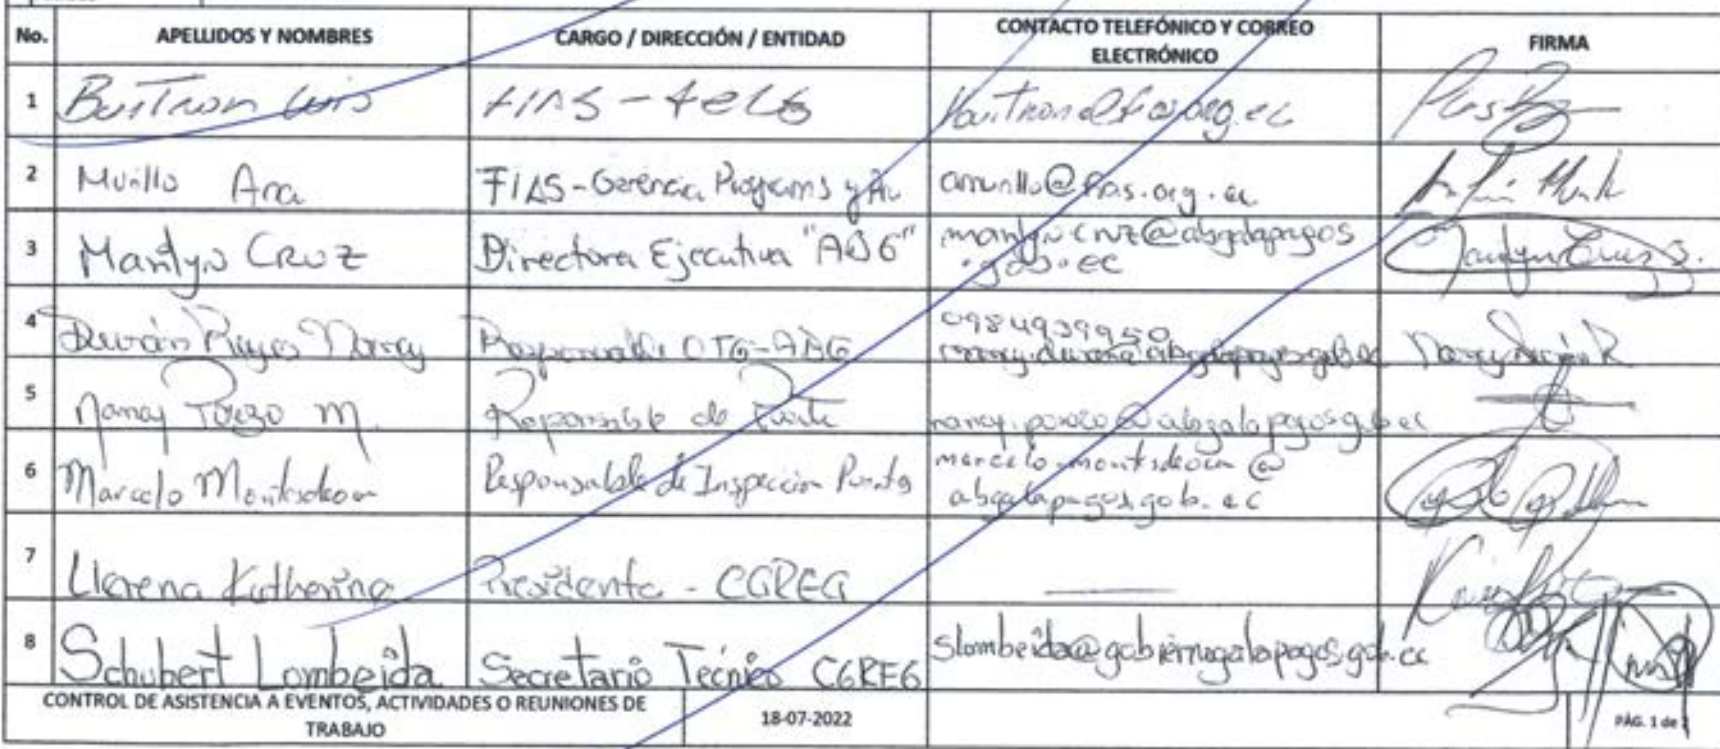 No. APELLIDOS Y NOMBRES CARGO / DIRECCIÓN / ENTIDAD CONTACTO TELEFÓNICO Y CORREO ELECTRÓNICO FIRMA
1 Buitron Luis FIAS -
2 Murillo Ana FIAS-Gerencia Programs y amurillo@fias.org.ec
3 Marilyn CRUZ Directora Ejecutiva "ABG" marilyn.cruz@abgalapagos
.gob.ec
4 Durán Reyes Nancy Responsable OTG-ABG 0984939950
nancy.duran@abgalapagos.gob.ec
5 Nancy M. Responsable de
6 Marcelo Montesdeoca Responsable de Inspección marcelo.montesdeoca@
abgalapagos.gob.ec
7 Llerena Katherine Presidenta - CGREG
8 Schubert Lombeida Secretario Técnico CGREG slombeida@gobiernogalapagos.gob.ec
CONTROL DE ASISTENCIA A EVENTOS, ACTIVIDADES O REUNIONES DE TRABAJO 18-07-2022 PÁG. 1 de